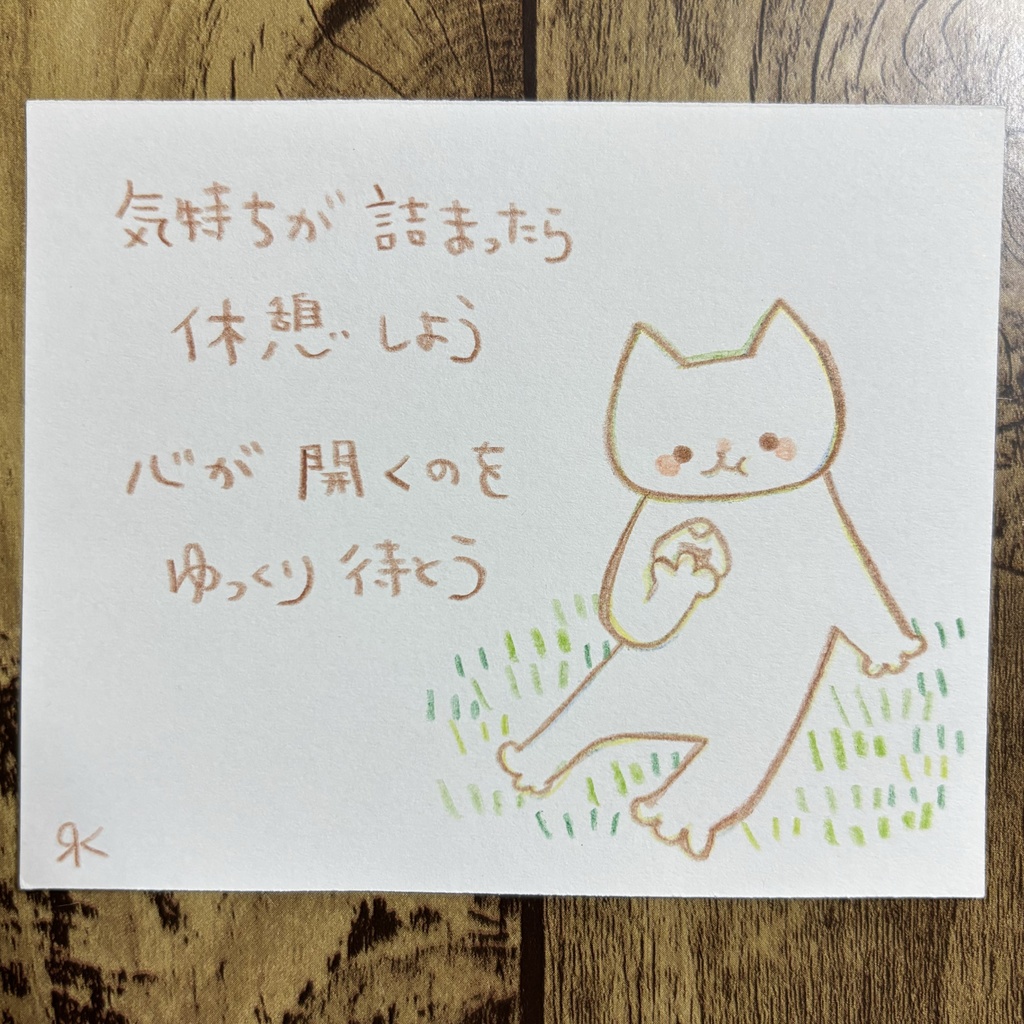 気持ちが 詰まったら
休憩 しよう
心が 開くのを
ゆっくり 待とう